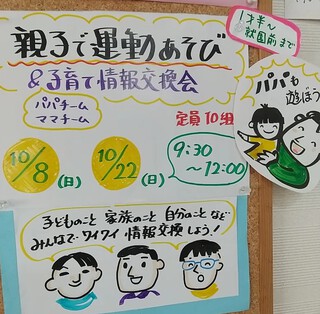 親子で運動あそび
&子育て情報交換会
パパチーム
ママチーム
定員10組
10/8(日)
10/22(日)
9:30
~12:00
1才半~
就園前まで
パパも
遊ぼう
子どものこと 家族のこと 自分のこと など
みんなで ワイワイ 情報交換しよう!